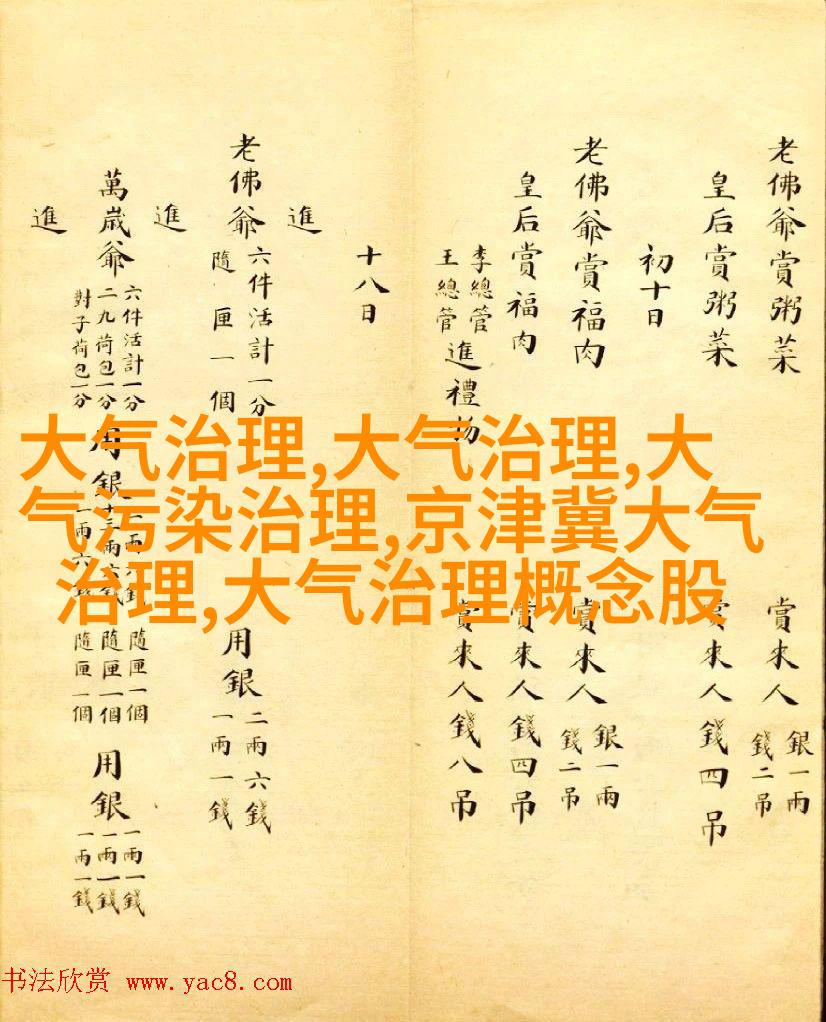 老佛爺賞粥菜 賞來人 銀一兩 錢二吊
皇后賞粥菜 賞來人錢四吊
初十日
老佛爺賞福肉 賞來人 銀一兩 錢二吊
皇后賞福肉 賞來人錢四吊
李總管
王總管
進禮物 賞來人錢八吊
十八日
進
老佛爺
六件活計一分
隨匣一個
用銀
二兩六錢
一兩一錢
進
萬歲爺
六件活計一分
二九荷包一分
對子荷包一分
用銀
隨匣一個
隨匣一個
隨匣一個
用銀
一兩一錢
一兩一錢
一兩一錢
進
大气治理,大气治理,大
气污染治理,京津冀大气
治理,大气治理概念股
书法欣赏 www.yac8.com